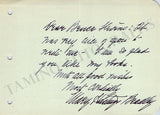 Dear Bruce Stevens: It
was very nice of you to
write me. I am so glad
you like my books.
With all good wishes
Most cordially
Mary Hastings Bradley